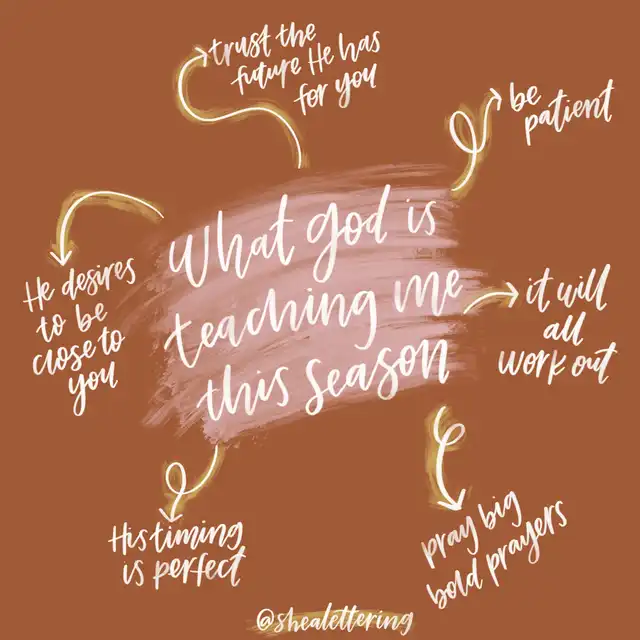 trust the
future He has
for you
be
patient
What god is
teaching me
this season
He desires
to be
close to
you
it will
all
work out
His timing
is perfect
pray big
bold prayers
@shealettering